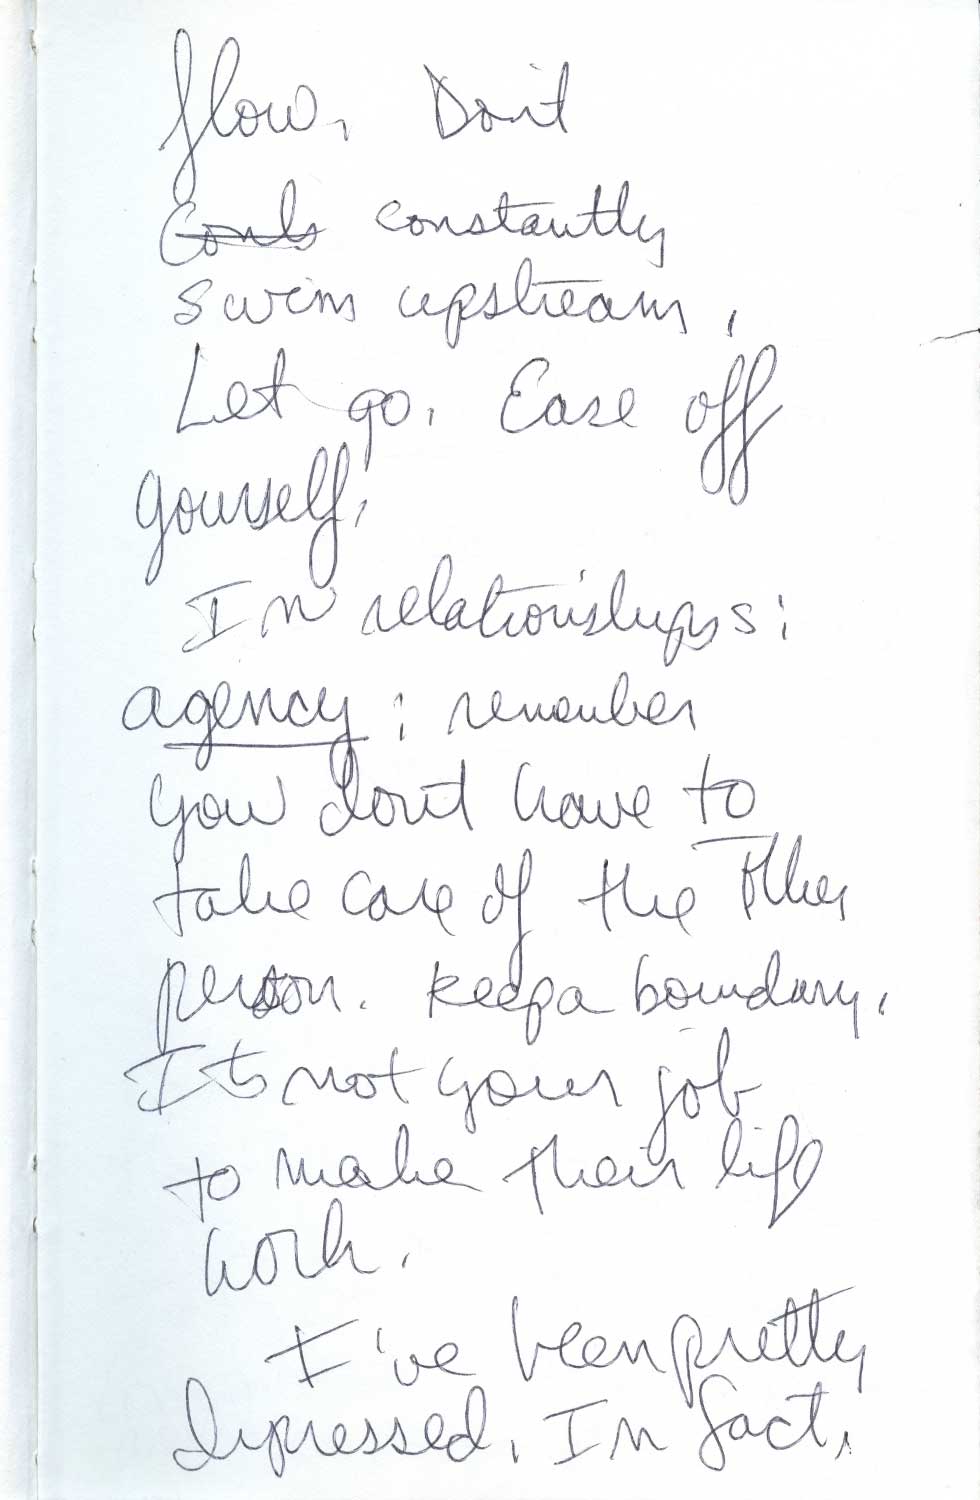 flow. Don't
Conls constantly
swim upstream.
Let go. Ease off
yourself.
In relationships:
agency: remember
you don't have to
take care of the other
person. Keep a boundary.
It's not your job
to make their life
work.
I've been pretty
depressed. In fact,